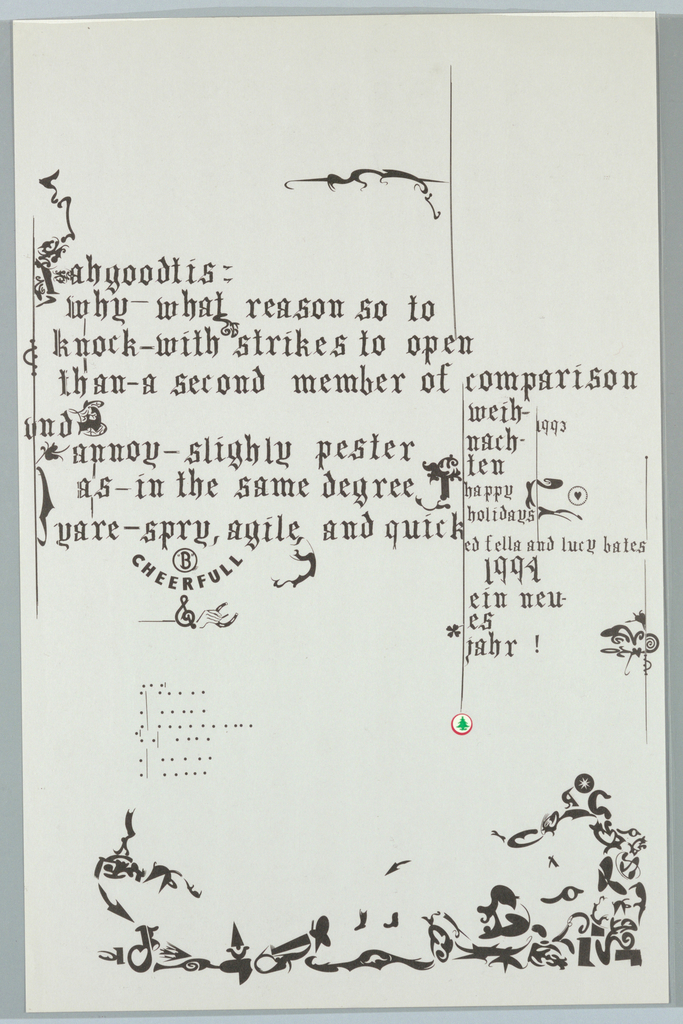 ahgoodtis:
why-what reason so to
knock-with strikes to open
than-a second member of comparison
und
annoy-slighly pester
as-in the same degree
yare-spry, agile, and quick
B
CHEERFULL
weih-
nach-
ten
1993
happy
holidays
ed fella and lucy bates
1994
ein neu-
es
jahr !